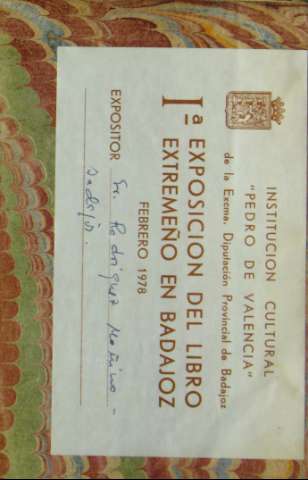 INSTITUCION CULTURAL
"PEDRO DE VALENCIA"
de la Excma. Diputación Provincial de Badajoz
Iª EXPOSICION DEL LIBRO
EXTREMEÑO EN BADAJOZ
FEBRERO 1978
EXPOSITOR Sr. Rodriguez Moñino -
Badajoz.